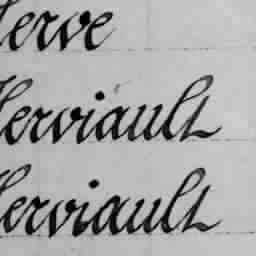 Herve
Herviault
Herviault